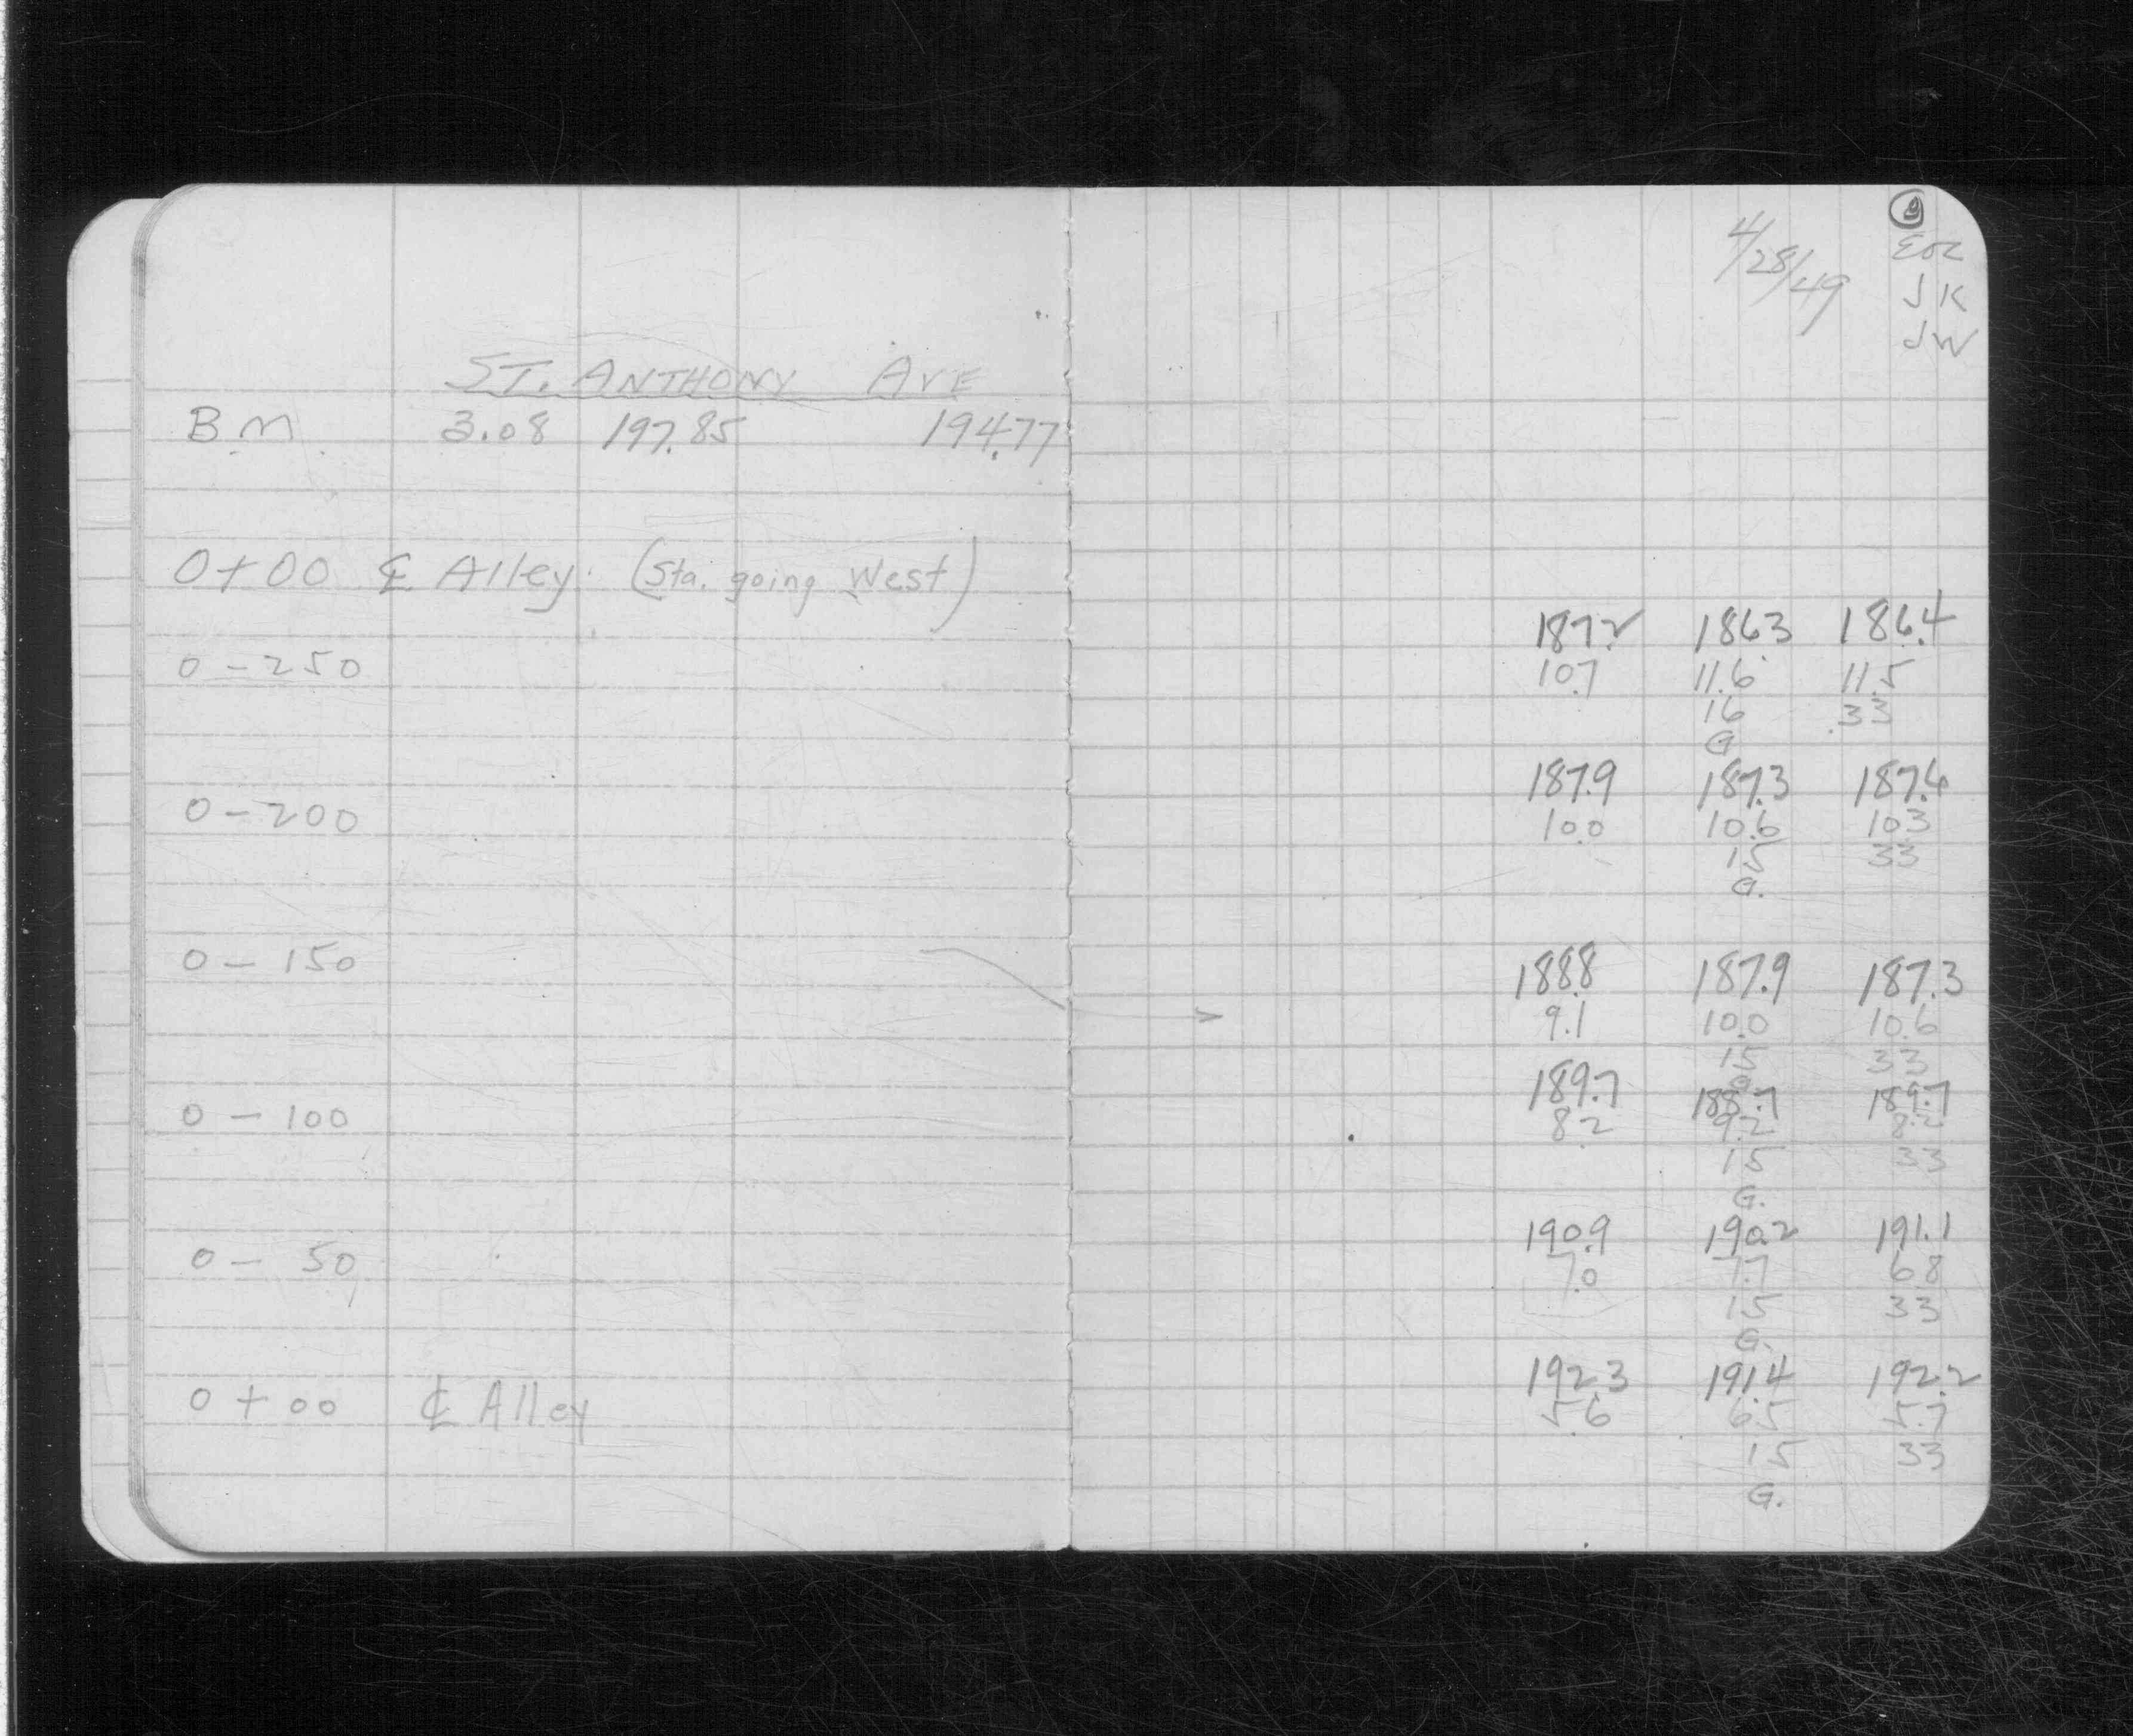 ST. ANTHONY AVE
BM 3.08 197.85 194.77
0+00 ℄ Alley. (Sta. going West)
0-250
0-200
0-150
0-100
0-50
0+00 ℄ Alley
4/28/49
JK
JW
187.2 186.3 186.4
10.7 11.6 11.5
16 33
G
187.9 187.3 187.6
10.0 10.6 10.3
15 33
G.
188.8 187.9 187.3
9.1 10.0 10.6
15 33
G
189.7 188.7 189.7
8.2 9.2 8.2
15 33
G.
190.9 190.2 191.1
7.0 7.7 6.8
15 33
G.
192.3 191.4 192.2
5.6 6.5 5.7
15 33
G.